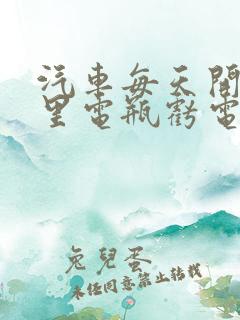 汽車每天開
里電瓶虧電
兔兒蛋
未经同意禁止转载